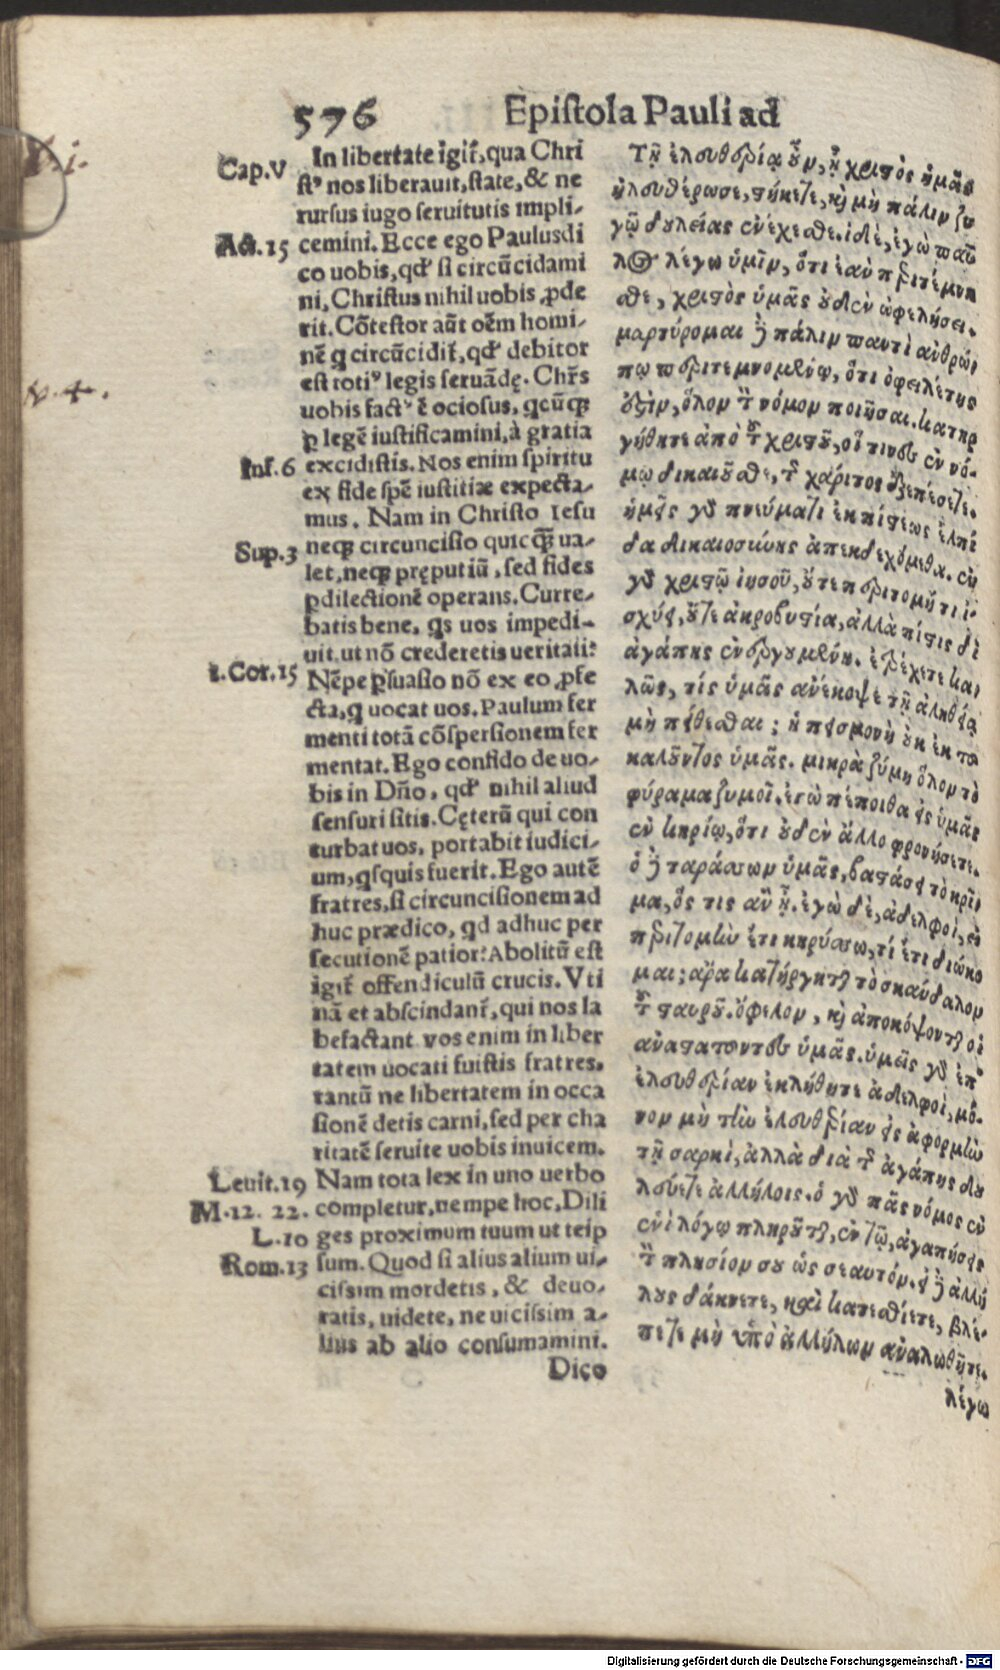 576
Epistola Pauli ad
Cap.V
Act.15
Inf.6
Sup.3
1.Cor.15
Levit.19
M.12. 22.
L.10
Rom.13
In libertate igit᷑, qua Chri
stꝰ nos liberauit, state, & ne
rursus iugo seruitutis impli⸗
cemini. Ecce ego Paulus di
co uobis, qđ si circũcidami
ni, Christus nihil uobis ꝓde
rit. Cõtestor aũt oẽm homi⸗
nẽ q circũcidit᷑, qđ debitor
est totiꝰ legis seruãdę. Chr̃s
uobis factꝰ ẽ ociosus, qcũqꝫ
ꝑ legẽ iustificamini, à gratia
excidistis. Nos enim spiritu
ex fide spẽ iustitiæ expecta⸗
mus. Nam in Christo Iesu
neqꝫ circuncisio quicqꝫ̃ ua⸗
let, neqꝫ pręputiũ, sed fides
ꝑ dilectionẽ operans. Curre⸗
batis bene, qs uos impedi⸗
uit, ut nõ crederetis ueritati?
Nẽpe ꝑsuasio nõ ex eo ꝓfe
cta, q uocat uos. Paulum fer
menti totã cõspersionem fer
mentat. Ego confido de uo⸗
bis in Dño, qđ nihil aliud
sensuri sitis. Cęterũ qui con
turbat uos, portabit iudici⸗
um, qsquis fuerit. Ego autẽ
fratres, si circuncisionem ad
huc prædico, qd adhuc per
secutionẽ patior? Abolitũ est
igit᷑ offendiculũ crucis. Vti
nã et abscindant᷑, qui nos la
befactant. vos enim in liber
tatem uocati fuistis fratres,
tantũ ne libertatem in occa
sionẽ detis carni, sed per cha
ritatẽ seruite uobis inuicem.
Nam tota lex in uno uerbo
completur, nempe hoc, Dili
ges proximum tuum ut teip
sum. Quod si alius alium ui⸗
cissim mordetis, & deuo⸗
ratis, uidete, ne uicissim a⸗
lius ab alio consumamini.
Dico
Τῇ ἐλευθερίᾳ οὖν, ᾗ χριστὸς ἡμᾶς
ἠλευθέρωσε, στήκετε, καὶ μὴ πάλιν ζυ
γῷ δουλείας ἐνέχεσθε. ἰδὲ, ἐγὼ παῦ
λος λέγω ὑμῖν, ὅτι ἐὰν περιτέμνη
σθε, χριστὸς ὑμᾶς οὐδὲν ὠφελήσει.
μαρτύρομαι δὲ πάλιν παντὶ ἀνθρώ
πῳ περιτεμνομένῳ, ὅτι ὀφειλέτης
ἐστὶν, ὅλον τὸν νόμον ποιῆσαι. κατηρ
γήθητε ἀπὸ τοῦ χριστοῦ, οἵ τινες ἐν νό⸗
μῳ δικαιοῦσθε, τῆς χάριτος ἐξεπέσετε.
ἡμεῖς γὰρ πνεύματι ἐκ πίστεως ἐλπί
δα δικαιοσύνης ἀπεκδεχόμεθα. ἐν
γὰρ χριστῷ ἰησοῦ, οὔτε περιτομή τι ἰ⸗
σχύει, οὔτε ἀκροβυστία, ἀλλὰ πίστις δι
ἀγάπης ἐνεργουμένη. ἐτρέχετε κα
λῶς, τίς ὑμᾶς ἀνέκοψε τῇ ἀληθείᾳ
μὴ πείθεσθαι; ἡ πεισμονὴ οὐκ ἐκ τοῦ
καλοῦντος ὑμᾶς. μικρὰ ζύμη ὅλον τὸ
φύραμα ζυμοῖ. ἐγὼ πέποιθα εἰς ὑμᾶς
ἐν κυρίῳ, ὅτι οὐδὲν ἄλλο φρονήσετε.
ὁ δὲ ταράσσων ὑμᾶς, βαστάσει τὸ κρῖ
μα, ὅς τις ἂν ᾖ. ἐγὼ δὲ, ἀδελφοὶ, εἰ
περιτομὴν ἔτι κηρύσσω, τί ἔτι διώκο
μαι; ἄρα κατήργηται τὸ σκάνδαλον
τοῦ σταυροῦ. ὄφελον, καὶ ἀποκόψονται οἱ
ἀναστατοῦντες ὑμᾶς. ὑμεῖς γὰρ ἐπ'
ἐλευθερίαν ἐκλήθητε ἀδελφοὶ, μό⸗
νον μὴ τὴν ἐλευθερίαν εἰς ἀφορμὴν
τῇ σαρκὶ, ἀλλὰ διὰ τῆς ἀγάπης δου
λεύετε ἀλλήλοις. ὁ γὰρ πᾶς νόμος ἐν
ἑνὶ λόγῳ πληροῦται, ἐν τῷ, ἀγαπήσεις
τὸν πλησίον σου ὡς σεαυτόν. εἰ δὲ ἀλλή
λους δάκνετε, καὶ κατεσθίετε, βλέ⸗
πετε μὴ ὑπὸ ἀλλήλων ἀναλωθῆτε.
λέγω
Digitalisierung gefördert durch die Deutsche Forschungsgemeinschaft - DFG